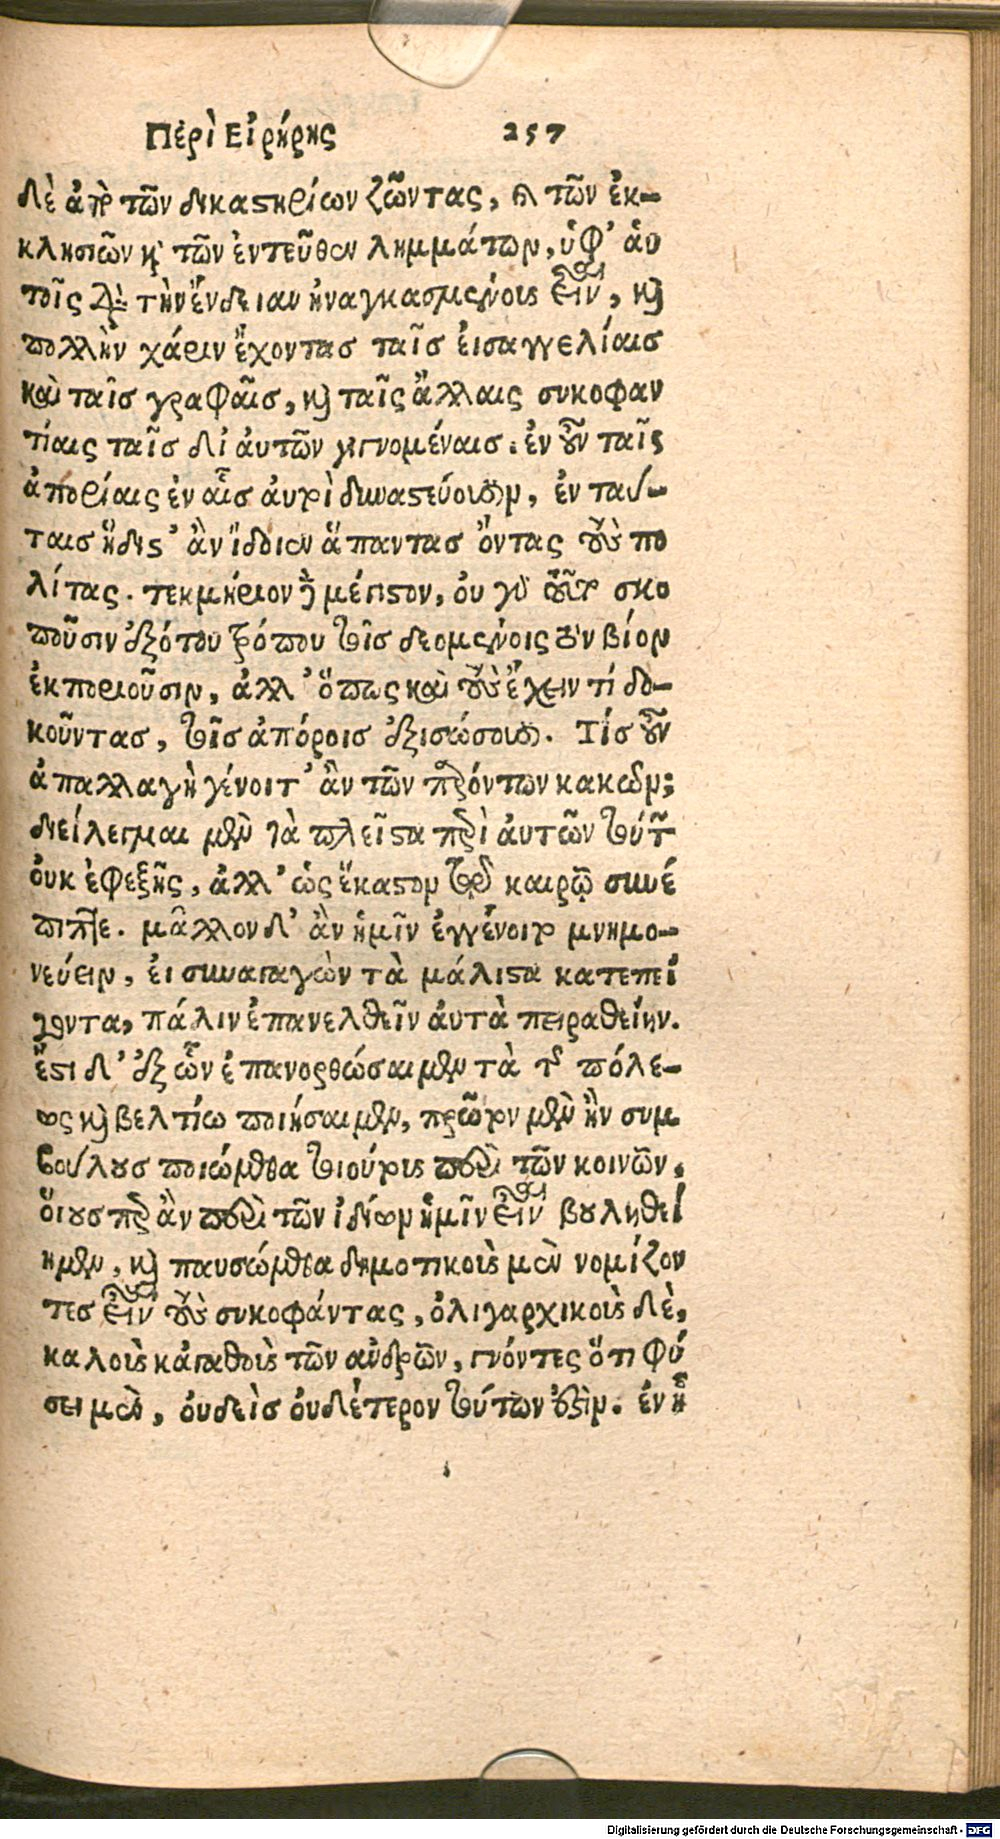 Περὶ Εἰρήνης 257
δὲ ἀπὸ τῶν δικαστηρίων ζῶντας, καὶ τῶν ἐκ-
κλησιῶν καὶ τῶν ἐντεῦθεν λημμάτων, ὑφ' αὑ
τοῖς διὰ τὴν ἔνδειαν ἠναγκασμένους εἶναι, καὶ
πολλὴν χάριν ἔχοντας ταῖς εἰσαγγελίαις
καὶ ταῖς γραφαῖς, καὶ ταῖς ἄλλαις συκοφαν
τίαις ταῖς δι' ἀυτῶν γιγνομέναις. ἐν οὖν ταῖς
ἀπορίαις ἐν αἷς ἀυτοὶ δυναστεύουσιν, ἐν ταύ-
ταις ἥδιστ' ἂν ἴδοιεν ἅπαντας ὄντας τοὺς πο
λίτας. τεκμήριον δὲ μέγιστον, ὀυ γὰρ τοῦτο σκο
ποῦσιν ἐξ ὅτου τρόπου τοῖς δεομένοις τὸν βίον
ἐκποριοῦσιν, ἀλλ' ὅπως καὶ τοὺς ἔχειν τι δο-
κοῦντας, τοῖς ἀπόροις ἐξισώσουσι. Τίς οὖν
ἀπαλλαγὴ γένοιτ' ἂν τῶν παρόντων κακῶν;
διείλεγμαι μὲν τὰ πλεῖστα περὶ ἀυτῶν τούτων
ὀυκ ἐφεξῆς, ἀλλ' ὡς ἕκαστον τῷ καιρῷ συνέ
πιπτε. μᾶλλον δ' ἂν ἡμῖν ἐγγένοιτο μνημο-
νεύειν, ἐι συναγαγὼν τὰ μάλιστα κατεπεί
γοντα, πάλιν ἐπανελθεῖν ἀυτὰ πειραθείην.
ἔστι δ' ἐξ ὧν ἐπανορθώσαιμεν τὰ τῆς πόλε-
ως καὶ βελτίω ποιήσαιμεν, πρῶτον μὲν ἢν συμ
βούλους ποιώμεθα τοιούτους περὶ τῶν κοινῶν,
ὅιους περ ἂν περὶ τῶν ἰδίων ἡμῖν εἶναι βουληθεί
ημεν, καὶ παυσώμεθα δημοτικοὺς μὲν νομίζον
τες εἶναι τοὺς συκοφάντας, ὀλιγαρχικοὺς δὲ,
καλοὺς κἀγαθοὺς τῶν ἀνδρῶν, γνόντες ὅτι φύ
σει μὲν, ὀυδεὶς ὀυδέτερον τούτων ἐστίν. ἐν ᾗ